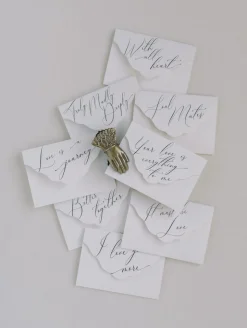 With
all
heart
Truly Madly
Deeply
Soul Mates
Love is a
journey
Your love is
everything
to me
Better
together
It must be
Love
I love you
more